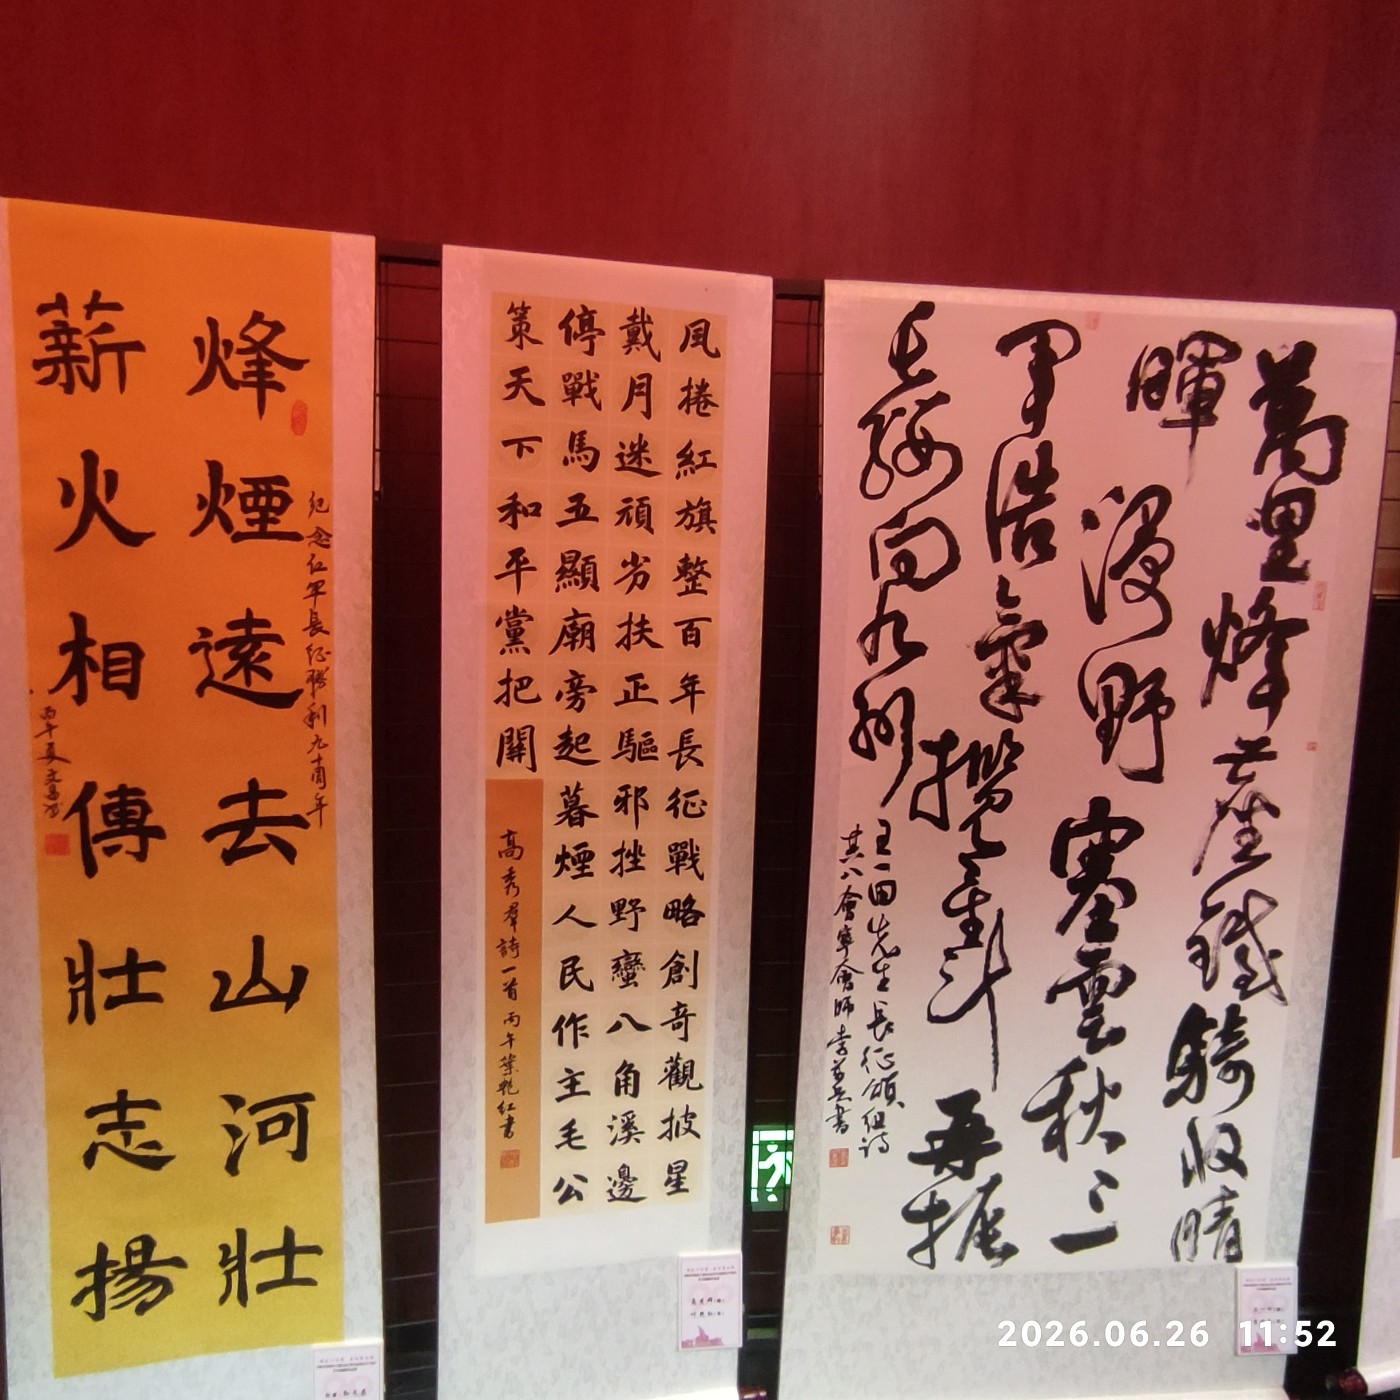 烽煙遠去山河壯
紀念红軍長征勝利九十周年
薪火相傳壯志揚
丙午夏
風捲紅旗整百年長征戰略創奇觀披星
戴月迷頑劣扶正驅邪挫野蠻八角溪邊
停戰馬五顯廟旁起暮煙人民作主毛公
策天下和平黨把關
高秀群詩一首丙午葉艳红書
萬里烽塵鐵騎收晴
暉漫野塞雲秋三
軍浩氣攬星斗再振
長纓向九州
王一田先生長征頌组诗
其八會寧會師
2026.06.26 11:52